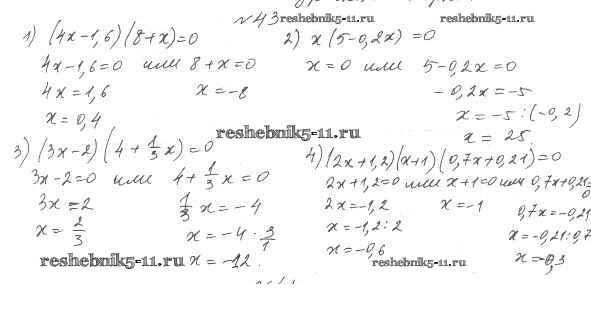 №43 reshebnik5-11.ru reshebnik5-11.ru
1) (4x-1,6)(8+x)=0
4x-1,6=0 или 8+x=0
4x=1,6 x=-8
x=0,4
2) x(5-0,2x)=0
x=0 или 5-0,2x=0
-0,2x=-5
x=-5:(-0,2)
x=25.
reshebnik5-11.ru
3) (3x-2)(4+1/3x)=0
3x-2=0 или 4+1/3x=0
3x=2 1/3x=-4
x=2/3 x=-4·3/1
reshebnik5-11.ru x=-12.
4) (2x+1,2)(x+1)(0,7x+0,21)=0
2x+1,2=0 или x+1=0 или 0,7x+0,21=0
2x=-1,2 x=-1 0,7x=-0,21
x=-1,2:2 x=-0,21:0,7
x=-0,6 x=-0,3
reshebnik5-11.ru